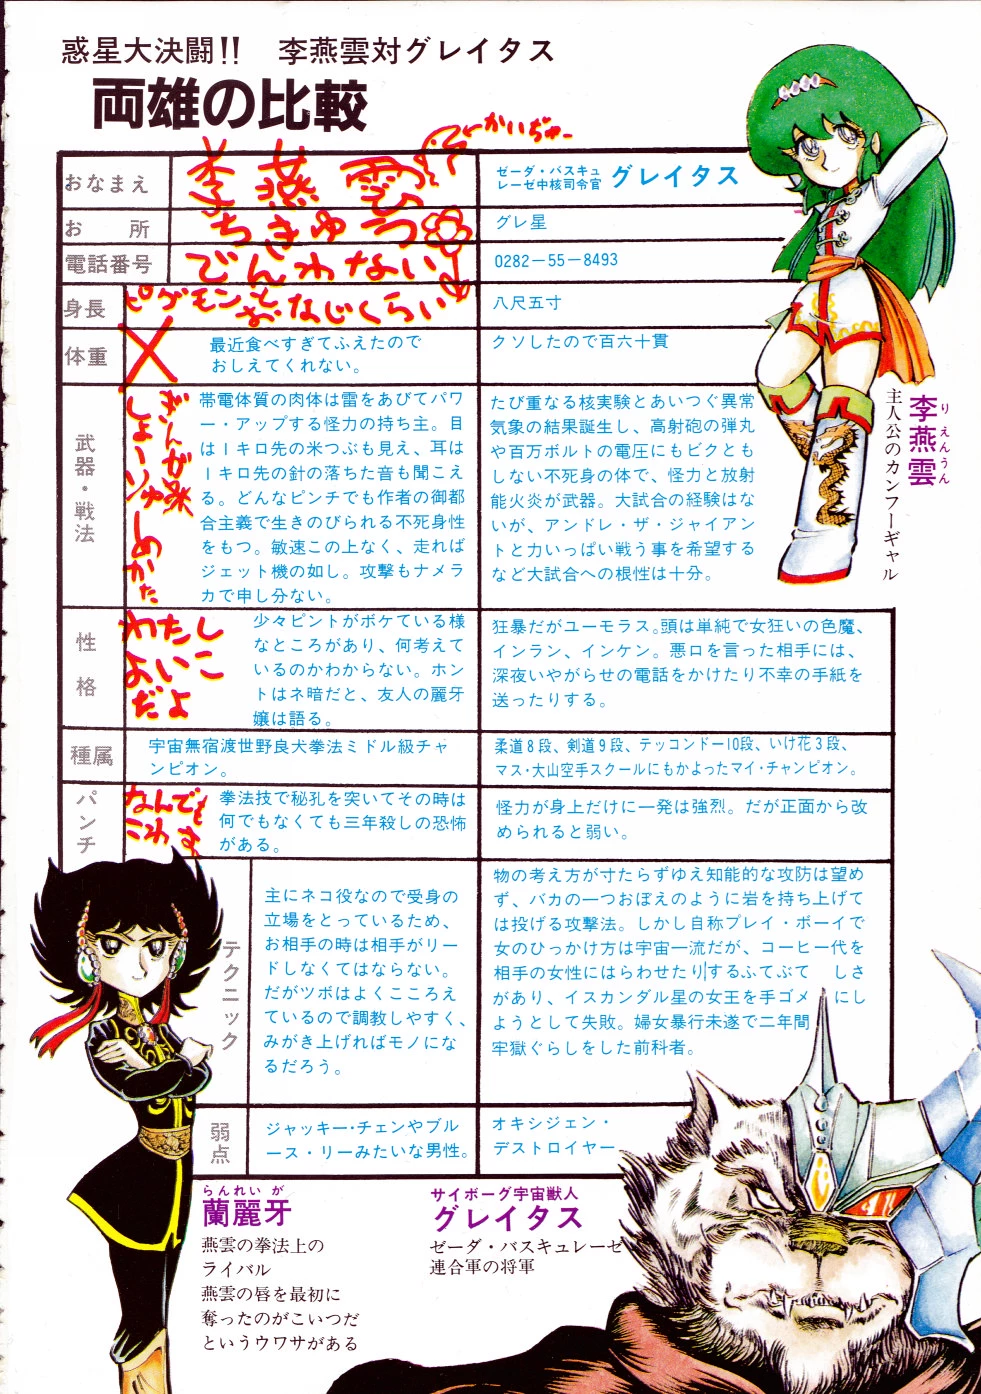 惑星大決闘!!　李燕雲対グレイタス
両雄の比較
おなまえ
李燕雲
←かいぢゅー
ゼーダ・バスキュ
レーゼ中核司令官 グレイタス
お　所
ちきゅう
グレ星
電話番号
でんわない
0282−55−8493
身長
ピグモンと
おなじくらい
八尺五寸
体重
最近食べすぎてふえたので
おしえてくれない。
クソしたので百六十貫
武器・戦法
ぎんが
しょーりゅー
しめかた
帯電体質の肉体は雷をあびてパワ
ー・アップする怪力の持ち主。目
は1キロ先の米つぶも見え、耳は
1キロ先の針の落ちた音も聞こえ
る。どんなピンチでも作者の御都
合主義で生きのびられる不死身性
をもつ。敏速この上なく、走れば
ジェット機の如し。攻撃もナメラ
カで申し分ない。
たび重なる核実験とあいつぐ異常
気象の結果誕生し、高射砲の弾丸
や百万ボルトの電圧にもビクとも
しない不死身の体で、怪力と放射
能火炎が武器。大試合の経験はな
いが、アンドレ・ザ・ジャイアン
トと力いっぱい戦う事を希望する
など大試合への根性は十分。
性格
わたし
よいこ
だよ
少々ピントがボケている様
なところがあり、何考えて
いるのかわからない。ホン
トはネ暗だと、友人の麗牙
嬢は語る。
狂暴だがユーモラス。頭は単純で女狂いの色魔、
インラン、インケン。悪口を言った相手には、
深夜いやがらせの電話をかけたり不幸の手紙を
送ったりする。
種属
宇宙無宿渡世野良犬拳法ミドル級チャ
ンピオン。
柔道8段、剣道9段、テッコンドー10段、いけ花3段、
マス・大山空手スクールにもかよったマイ・チャンピオン。
パンチ
なんでも
こわす
拳法技で秘孔を突いてその時は
何でもなくても三年殺しの恐怖
がある。
怪力が身上だけに一発は強烈。だが正面から改
められると弱い。
テクニック
主にネコ役なので受身の
立場をとっているため、
お相手の時は相手がリー
ドしなくてはならない。
だがツボはよくこころえ
ているので調教しやすく、
みがき上げればモノにな
るだろう。
物の考え方が寸たらずゆえ知能的な攻防は望め
ず、バカの一つおぼえのように岩を持ち上げて
は投げる攻撃法。しかし自称プレイ・ボーイで
女のひっかけ方は宇宙一流だが、コーヒー代を
相手の女性にはらわせたりするふてぶて　しさ
があり、イスカンダル星の女王を手ゴメ　にし
ようとして失敗。婦女暴行未遂で二年間
牢獄ぐらしをした前科者。
弱点
ジャッキー・チェンやブル
ース・リーみたいな男性。
オキシジェン・
デストロイヤー
李燕雲
りえんうん
主人公のカンフーギャル
らんれいが
蘭麗牙
燕雲の拳法上の
ライバル
燕雲の唇を最初に
奪ったのがこいつだ
というウワサがある
サイボーグ宇宙獣人
グレイタス
ゼーダ・バスキュレーゼ
連合軍の将軍